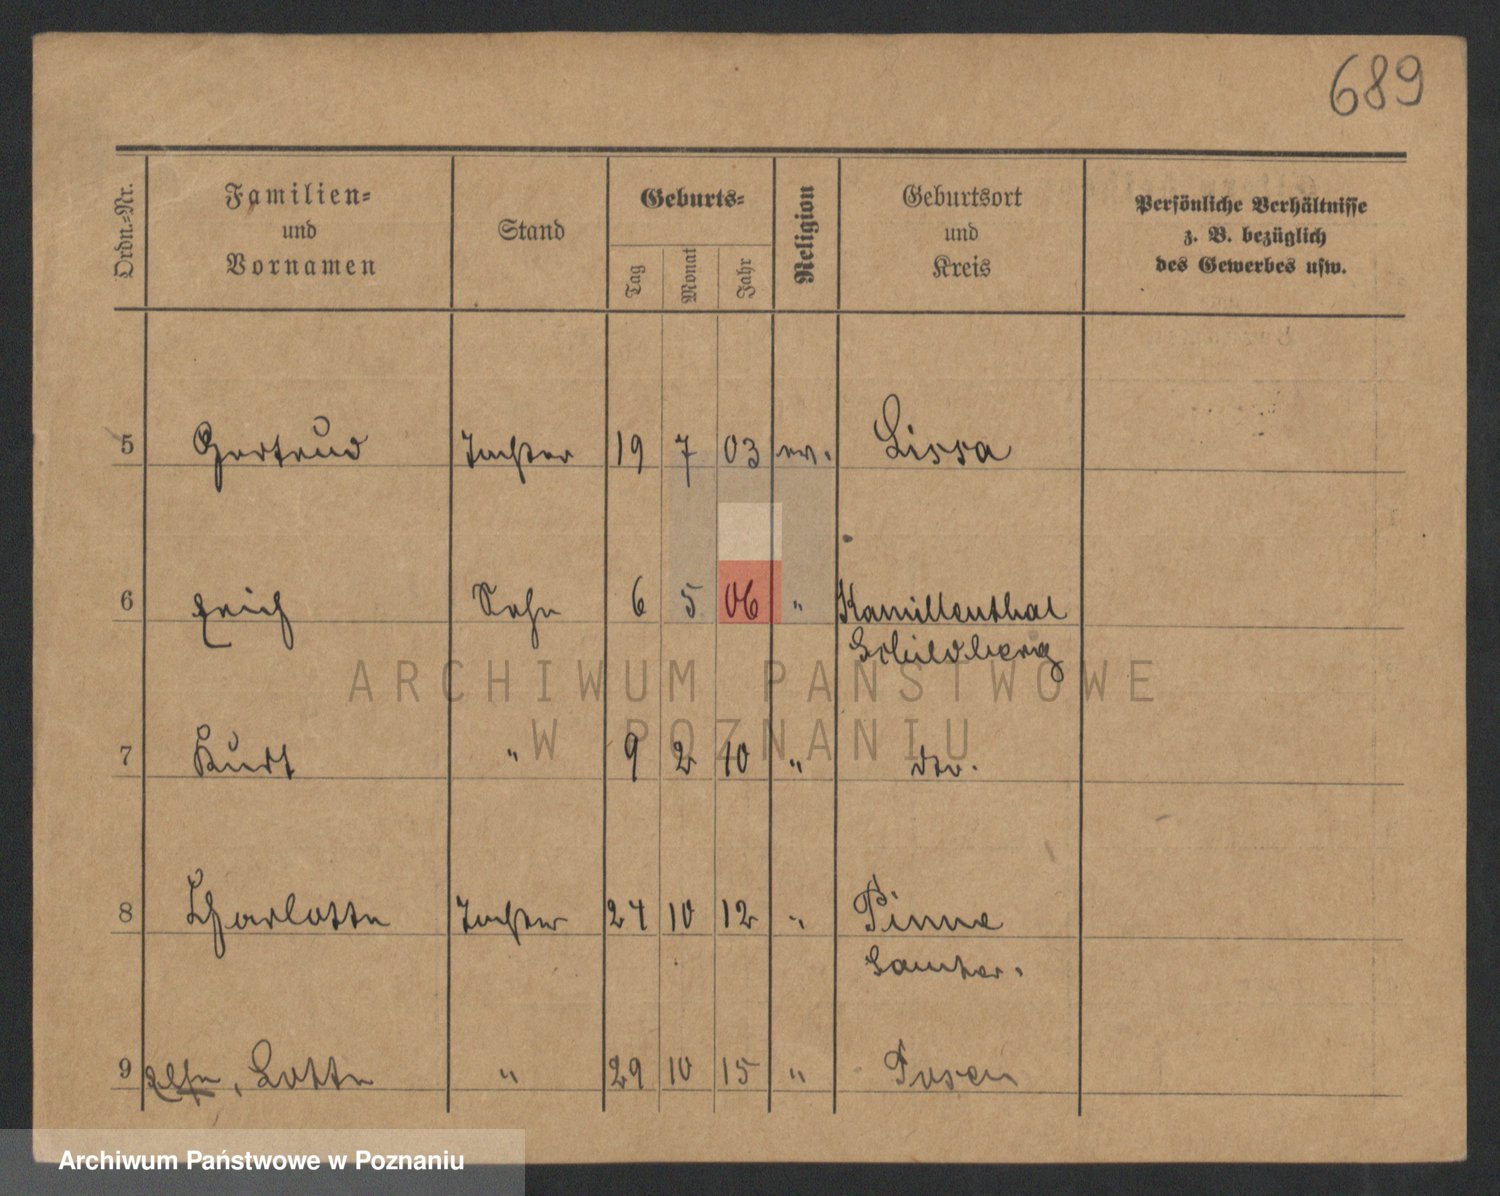 689
Ordn.-Nr.
Familien-
und
Vornamen
Stand
Geburts-
Tag
Monat
Jahr
Religion
Geburtsort
und
Kreis
Persönliche Verhältnisse
z. B. bezüglich
des Gewerbes usw.
5 Gertrud Tochter 19 7 03 ev. Lissa
6 Erich Sohn 6 5 06 " Kamillenthal
Schildberg
7 Kurt " 9 2 10 " dto.
8 Charlotte Tochter 24 10 12 " Pinne
Samter.
9 Else, Lotte " 29 10 15 " Posen
ARCHIWUM PAŃSTWOWE
W POZNANIU
Archiwum Państwowe w Poznaniu